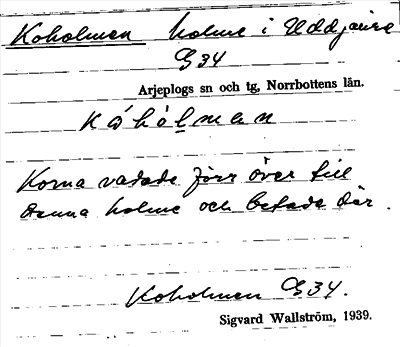 Koholmen holme i Uddjaure
G34
Arjeplogs sn och tg, Norrbottens län.
kåhòlmen
Korna vadade förr över till
denna holme och betade där.
Koholmen G34.
Sigvard Wallström, 1939.